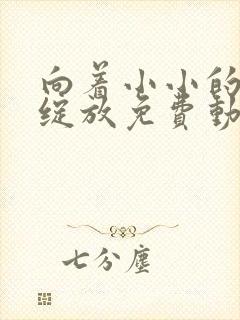 向着小小的
绽放免费動
七分塵